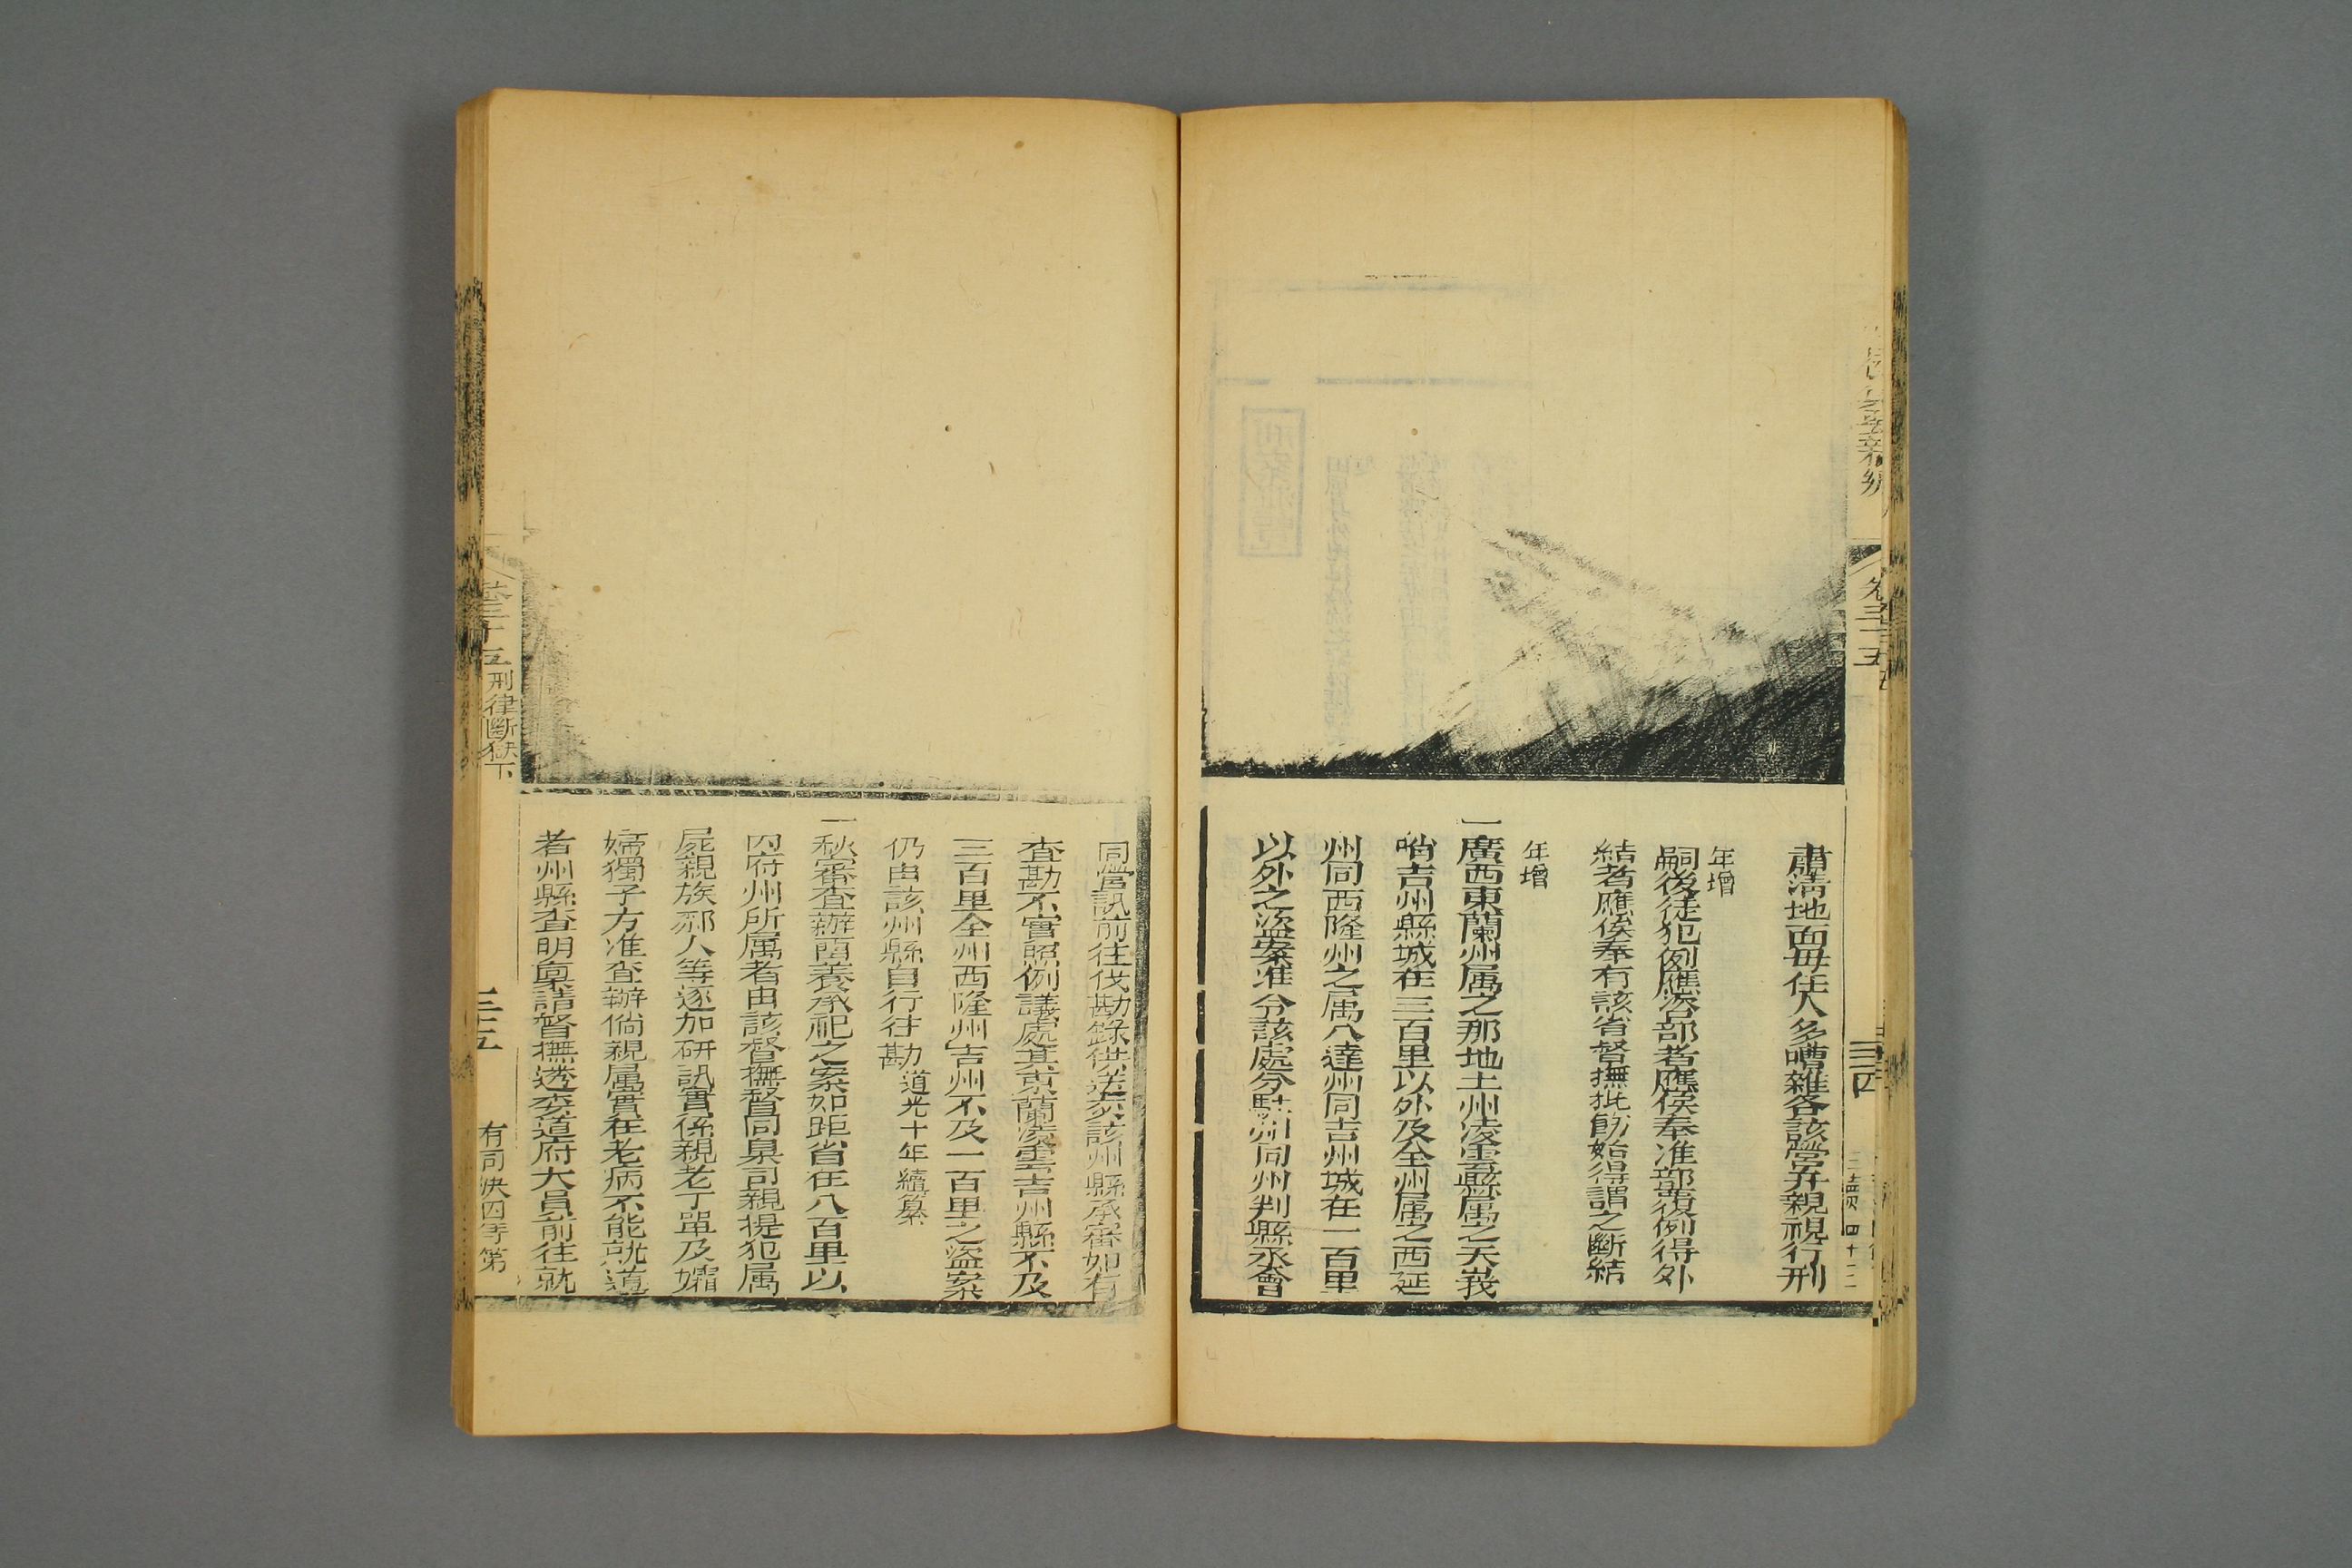 卷三十五
三十四
肅清地面毋任人多嘈雜各該營弁親視行刑
年增
嗣後徒犯例應咨部者應俟奉准部覆例得外
結者應俟奉有該省督撫批飭始得謂之斷結
年增
一廣西東蘭州屬之那地土州凌雲縣屬之天峩
哨吉州縣城在三百里以外及全州屬之西延
州同西隆州之屬八達州同吉州城在一百里
以外之盜案准令該處分駐州同州判縣丞會
同營訊前往伐勘錄供送交該州縣承審如有
查勘不實照例議處其東蘭凌雲吉州縣不及
三百里全州西隆州吉州不及一百里之盜案
仍由該州縣自行往勘道光十年續纂
一秋審查辦留養承祀之案如距省在八百里以
內府州所屬者由該督撫督同臬司親提犯屬
屍親族鄰人等逐加研訊實係親老丁單及孀
婦獨子方准查辦倘親屬實在老病不能就道
者州縣查明稟請督撫遴委道府大員前往就
卷三十五
刑律斷獄下
三十五
有司決囚等第